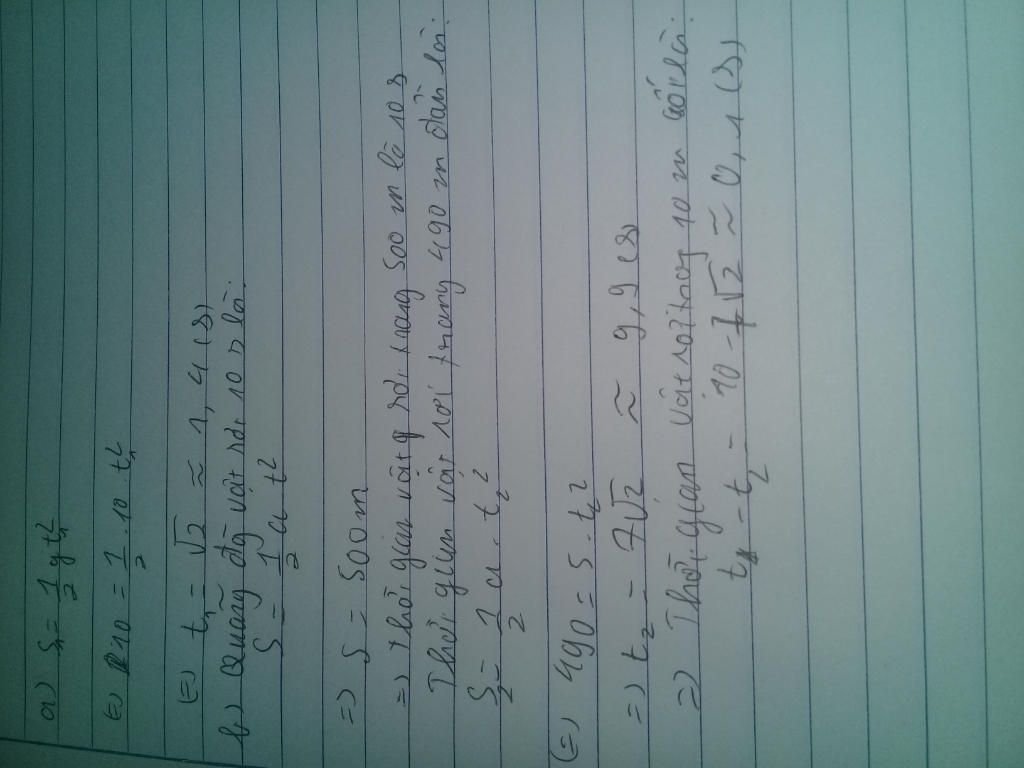 a) S₁ = 1/2 g t₁²
(=) 10 = 1/2 . 10 . t₁²
(=) t₁ = √2 ≈ 1,4 (s)
b) Quãng đg vật rơi 10 s là:
S = 1/2 a t²
=) S = 500 m
=) Thời gian vật rơi trong 500 m là 10 s
Thời gian vật rơi trong 490 m đầu là:
S₂ = 1/2 a . t₂²
(=) 490 = 5 . t₂²
=) t₂ = 7√2 ≈ 9,9 (s)
=) Thời gian vật rơi trong 10 m cuối là:
t - t₂ = 10 - 7√2 ≈ 0,1 (s)